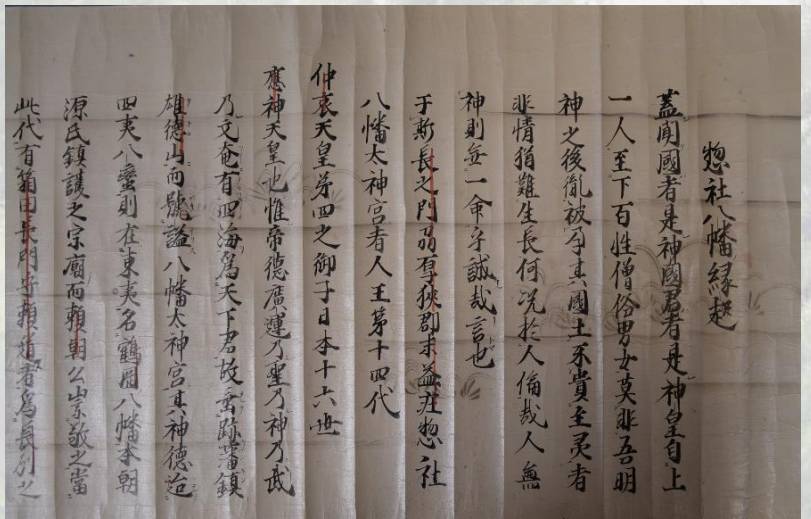 惣社八幡縁起
蓋聞國者是神國君者是神皇自上
一人至下百姓僧俗男女莫非吾明
神之後胤被孕其國土禾貴至灵者
非情猶難生長何况於人倫哉人無
神則無一命矣誠哉言也
于斯長之門厚狭郡末益庄惣社
八幡太神宮者人王第十四代
仲哀天皇第四之御子日本十六世
應神天皇也惟帝德廣運乃聖乃神乃武
乃文奄有四海為天下君故垂跡藩鎮
雄德山而號謚八幡太神宮其神德治
四夷八蛮則在東夷名鶴岡八幡本朝
源氏鎮護之宗廟而賴朝公崇敬之當
此代有箱田長門守賴 君為長列之